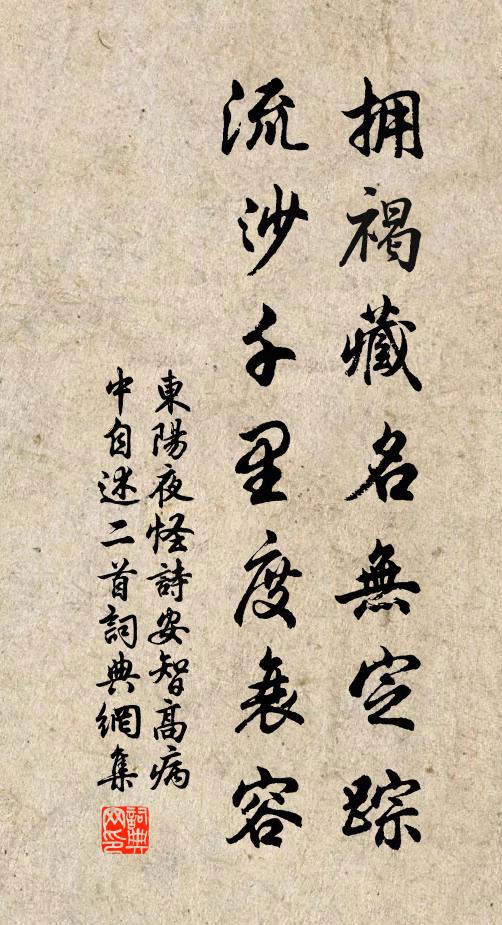 拥褐藏名無定踪
流沙千里度衰容
東陽夜怪詩安智高病
中自述二首詞典網集
詞典
网印